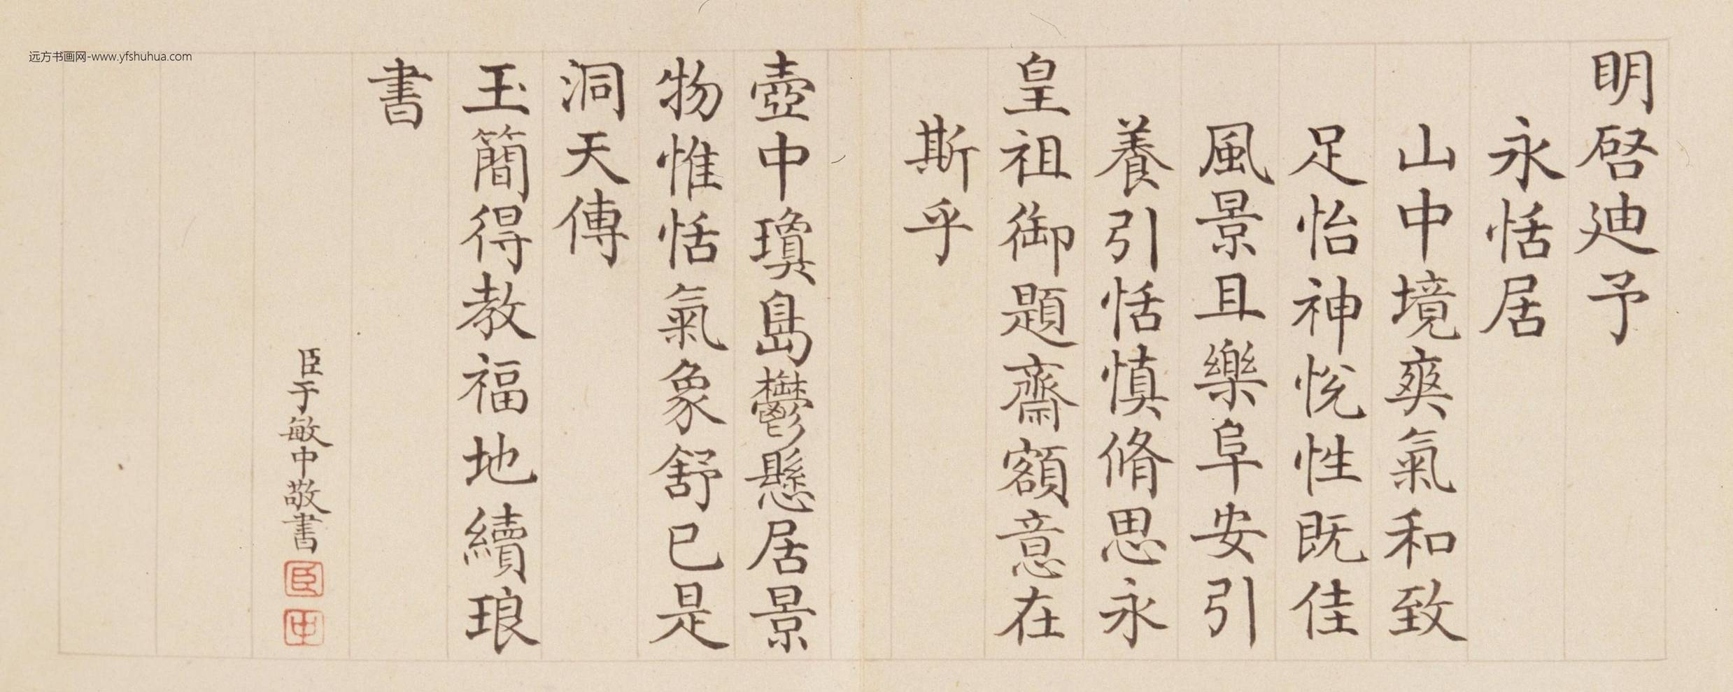 远方书画网-www.yfshuhua.com
明啓迪予
永恬居
山中境爽氣和致
足怡神悅性既佳
風景且樂阜安引
養引恬慎脩思永
皇祖御題齋額意在
斯乎
壺中瓊島鬱懸居景
物惟恬氣象舒已是
洞天傳
玉簡得教福地續琅
書
臣于敏中敬書
臣
中